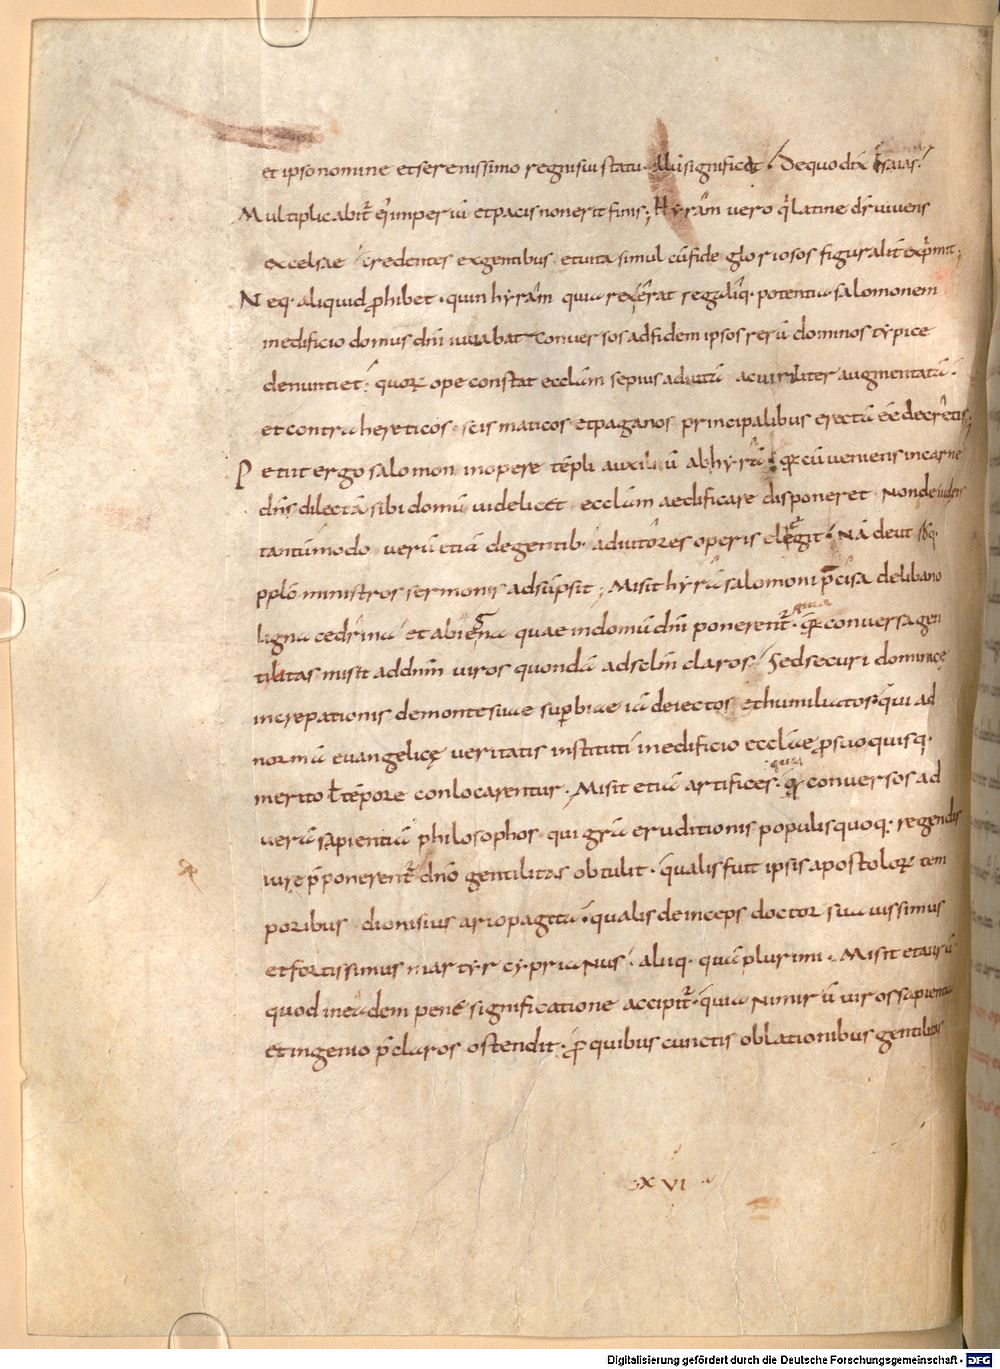 et ipso nomine et serenissimo regni sui statu · illū significat · De quo dix̄ esaias ·
Multiplicabit̄ ei' imperiū et pacis non erit finis ; Hyrā̄m vero q̄ latine dr̄ vivens
excelsae · credentes ex gentibus et vita simul cū fide gloriosos figuralit̄ exp̄mit ;
Neq· aliquid p̄hibet · quin hyrā̄m quia rex erat regaliq· potentia salomonem
in edificio domus dn̄i iuvabat conversos ad fidem ipsos rerū dominos typice
denuntiet · quoꝝ ope constat ecclām sepius adiutā ac viriliter augmentatā ·
et contra hereticos · scismaticos et paganos principalibus erectā eē decretis ;
Petiit ergo salomon in opere tēpli auxiliū ab hyrā · cū veniens in carne
dn̄s dilectā sibi domū videlicet ecclām aedificare disponeret · Non de iudeis
tantūmodo verū etiā de gentib· adiutores operis elegit · Nā de ut
pplō ministros sermonis adsūpsit ; Misit hyrā salomoni p̄cisa de libano
ligna cedrina et abiegna quae in domū dn̄i ponerent̄ · quia conversa gen
tilitas misit ad dnm̄ viros quondā ad sclm̄ claros · Sed securi dominicę
increpationis de monte suae sup̄biae iā deiectos et humiliatos · qui ad
normā evangelicę veritatis instituti in edificio ecclae p̄ suo quisq·
merito ł tēpore conlocarentur · Misit etiā artifices · quia conversos ad
verā sapientiā philosophos · qui grā eruditionis populis quoq· regendis
iure p̄ponerent̄ dn̄o gentilitas obtulit · qualis fuit ipsis apostoloꝝ tem
poribus dionisius ariopagita · qualis deinceps doctor suavissimus
et fortissimus martyr cyprianus · aliiq· quā plurimi · Misit et aurū
quod in eadem pene significatione accipit̄ · quia nimirū viros sapientia
et ingenio p̄claros ostendit · p̄ quibus cunctis oblationibus gentilitas
·xvi·
Digitalisierung gefördert durch die Deutsche Forschungsgemeinschaft - DFG